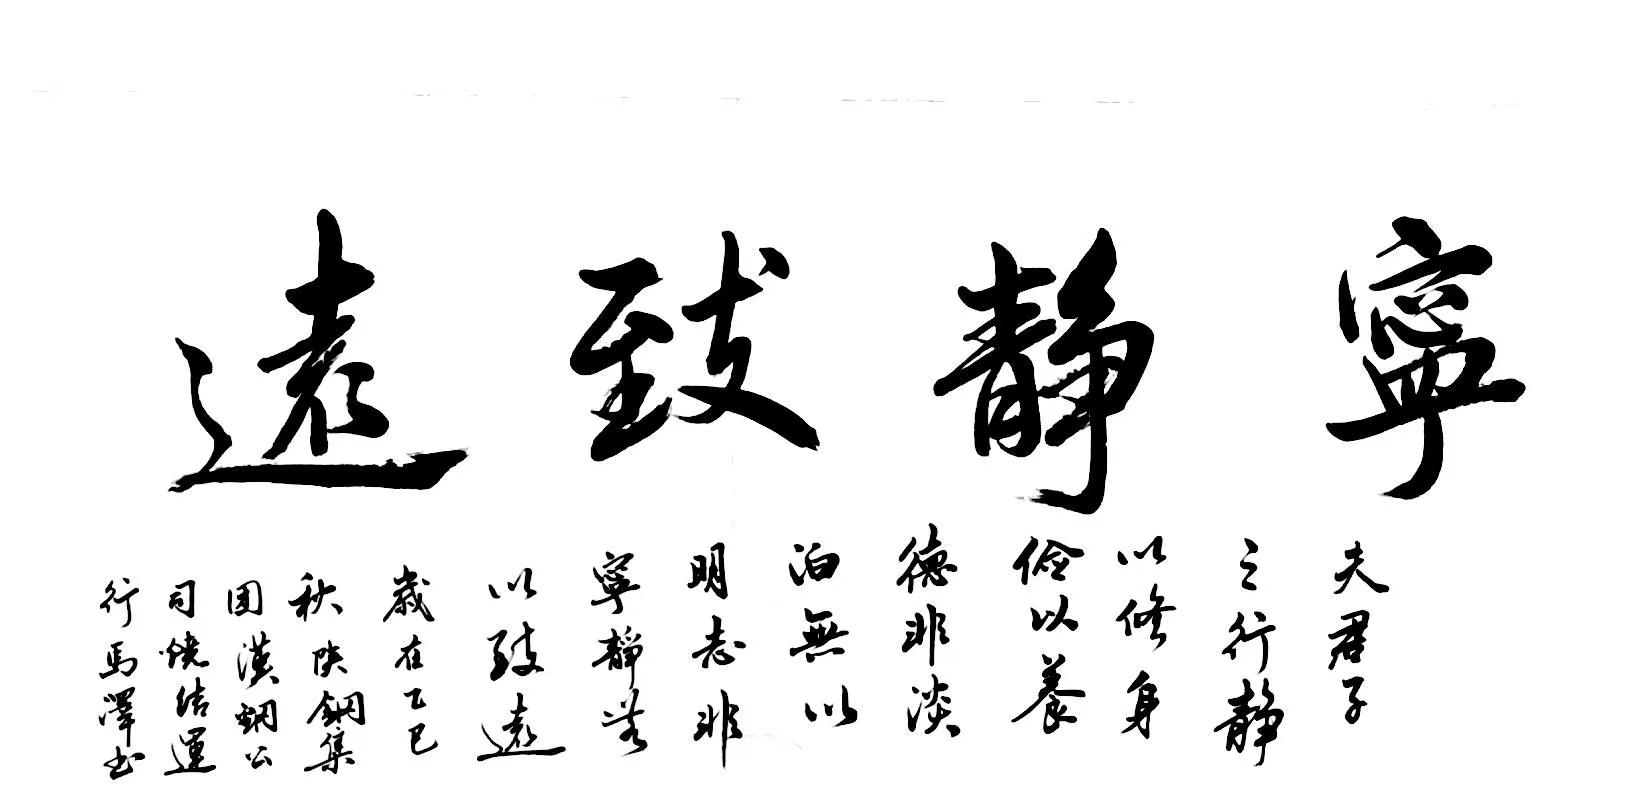 寧靜致遠
夫君子
之行靜
以修身
儉以養
德非淡
泊無以
明志非
寧靜無
以致遠
歲在乙巳
秋陝鋼集
团漢鋼公
司燒结運
行馬澤书